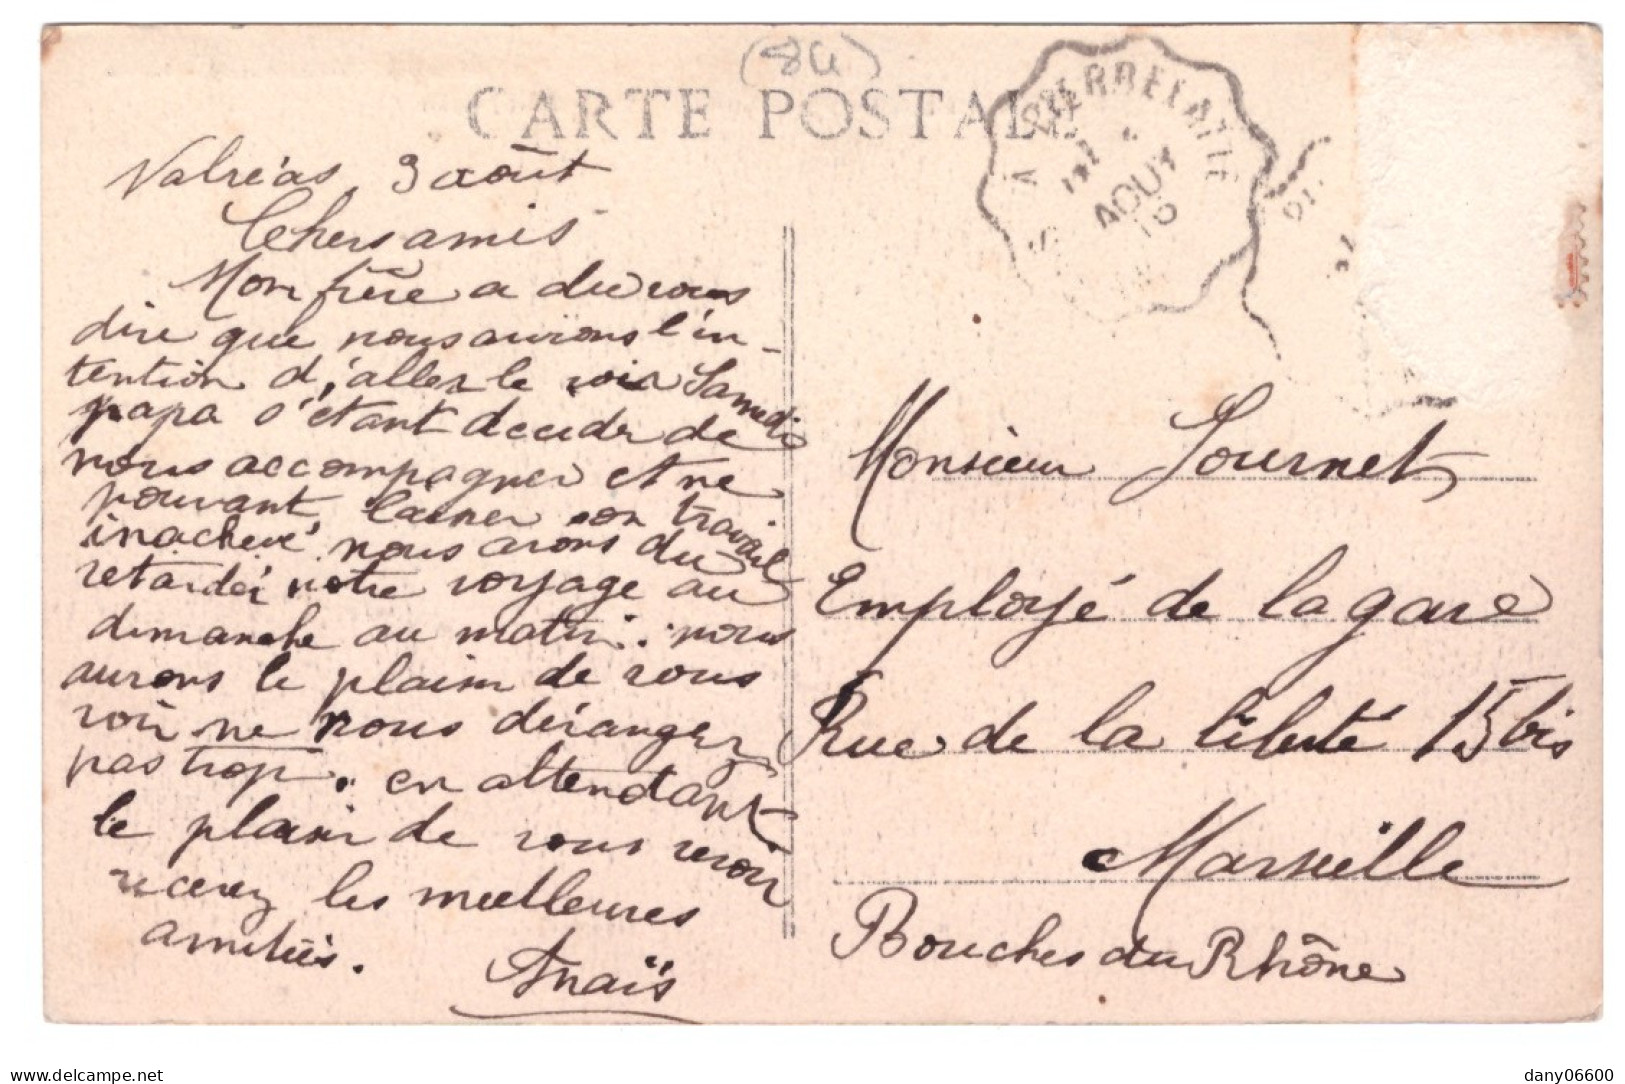 (84)
CARTE POSTALE
A PIERRELATTE
AOUT
10
Valréas 3 août
Chers amis
Mon frère a du vous
dire que nous avions l'in-
tention d'aller le voir Samedi
papa s'étant décider de
nous accompagner et ne
pouvant laisser son travail
inachevé nous avons du
retarder notre voyage au
dimanche au matin. nous
aurons le plaisir de vous
voir ne nous déranger
pas trop. en attendant
le plaisir de vous revoir
recevez les meilleures
amitiés.
Anaïs
Monsieur Journet
Employé de la gare
Rue de la liberté 15 bis
Marseille
Bouches du Rhône
delcampe.net
dany06600